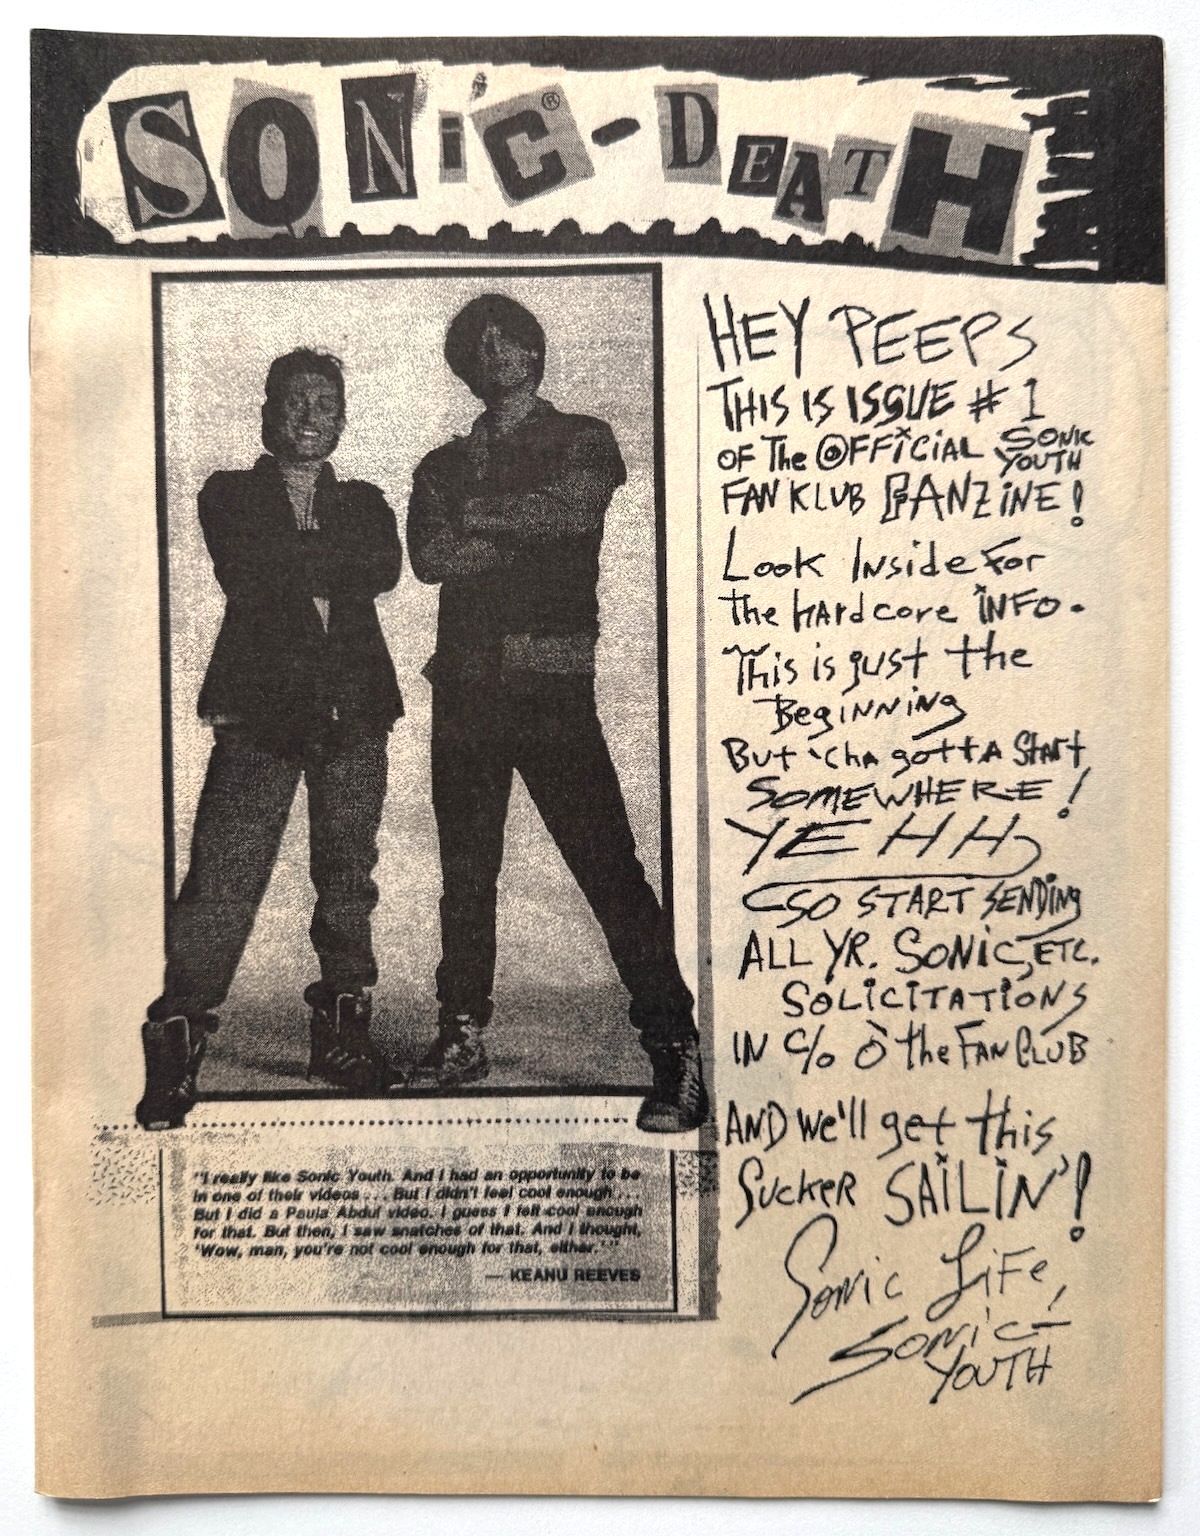 SONiC®-DEATH
HEY PEEPS
THIS IS ISSUE # 1
OF The OFFiCiAL SONIC YOUTH
FAN KLUB FANZiNE!
Look Inside For
the hardcore iNFO.
This is just the
Beginning
But 'cha gotta start
SOMEWHERE!
YEHH,
SO START SENDING
ALL YR. SONiC, ETC.
SOLiCITATIONS
IN C/o the FAN CLUB
AND we'll get this
Sucker SAiLiN'!
Sonic LiFe,
SONiC-
YOUTH
"I really like Sonic Youth. And I had an opportunity to be
in one of their videos . . . But I didn't feel cool enough . . .
But I did a Paula Abdul video. I guess I felt cool enough
for that. But then, I saw snatches of that. And I thought,
'Wow, man, you're not cool enough for that, either.'"
— KEANU REEVES